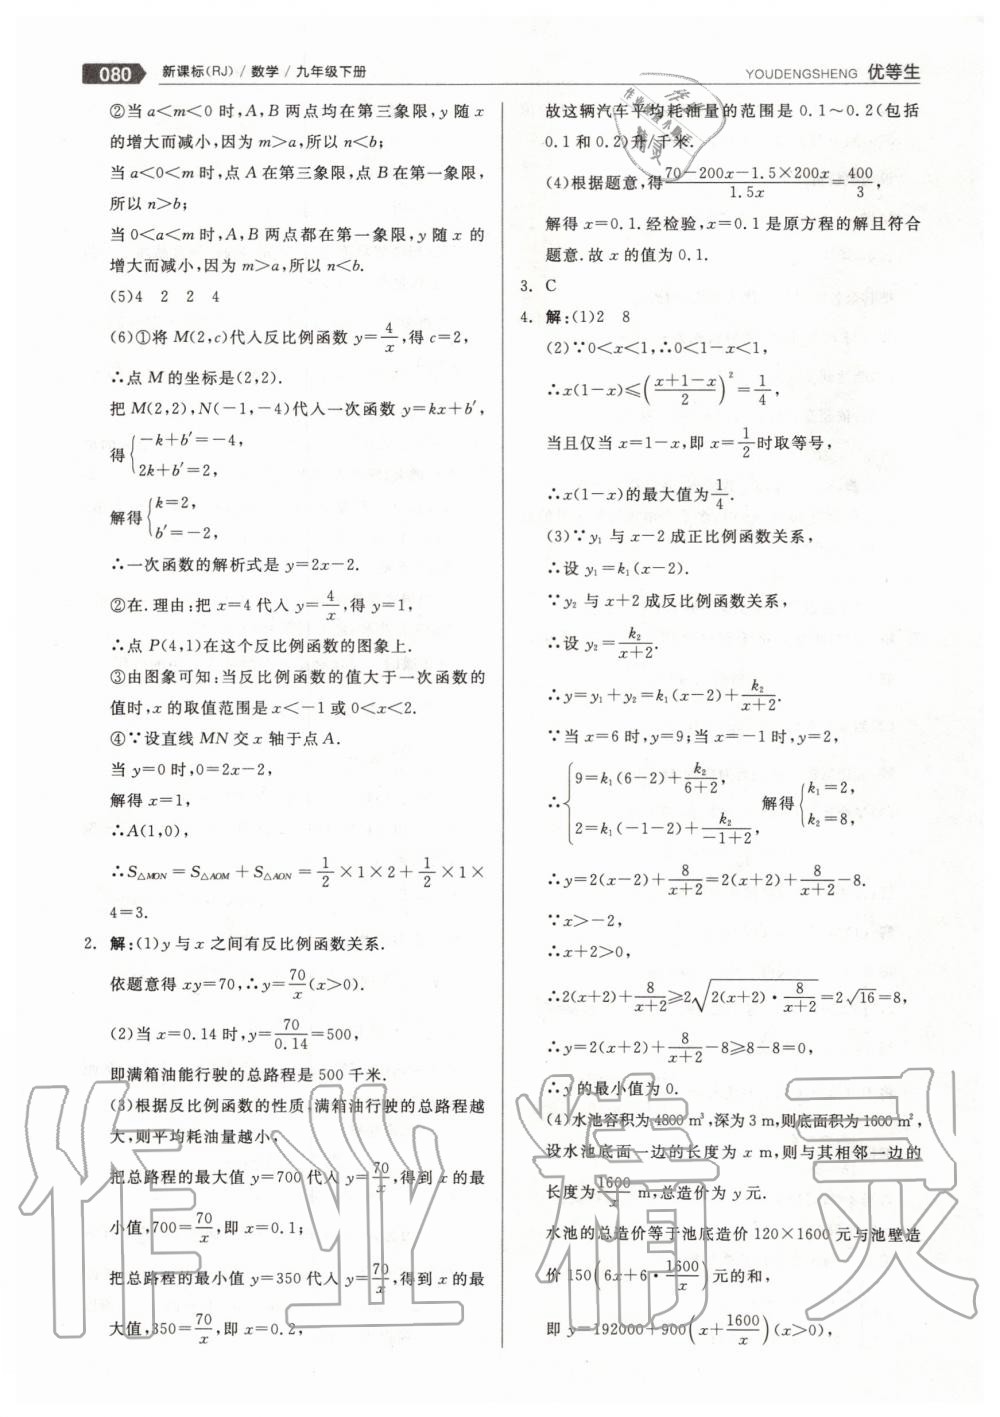 080 新课标(RJ)/数学/九年级下册
YOUDENGSHENG 优等生
②当a<m<0时,A,B两点均在第三象限,y随x
的增大而减小,因为m>a,所以n<b;
当a<0<m时,点A在第三象限,点B在第一象限,
所以n>b;
当0<a<m时,A,B两点都在第一象限,y随x的
增大而减小,因为m>a,所以n<b.
(5)4 2 2 4
(6)①将M(2,c)代入反比例函数y=4/x,得c=2,
∴点M的坐标是(2,2).
把M(2,2),N(-1,-4)代入一次函数y=kx+b′,
得{-k+b′=-4,
2k+b′=2,
解得{k=2,
b′=-2,
∴一次函数的解析式是y=2x-2.
②在.理由:把x=4代入y=4/x,得y=1,
∴点P(4,1)在这个反比例函数的图象上.
③由图象可知:当反比例函数的值大于一次函数的
值时,x的取值范围是x<-1或0<x<2.
④∵设直线MN交x轴于点A.
当y=0时,0=2x-2,
解得x=1,
∴A(1,0),
∴S△MON=S△AOM+S△AON=1/2×1×2+1/2×1×
4=3.
2. 解:(1)y与x之间有反比例函数关系.
依题意得xy=70,∴y=70/x(x>0).
(2)当x=0.14时,y=70/0.14=500,
即满箱油能行驶的总路程是500千米.
(3)根据反比例函数的性质,满箱油行驶的总路程越
大,则平均耗油量越小,
把总路程的最大值y=700代入y=70/x,得到x的最
小值,700=70/x,即x=0.1;
把总路程的最小值y=350代入y=70/x,得到x的最
大值,350=70/x,即x=0.2,
故这辆汽车平均耗油量的范围是0.1~0.2(包括
0.1和0.2)升/千米.
(4)根据题意,得(70-200x-1.5×200x)/1.5x=400/3,
解得x=0.1.经检验,x=0.1是原方程的解且符合
题意.故x的值为0.1.
3. C
4. 解:(1)2 8
(2)∵0<x<1,∴0<1-x<1,
∴x(1-x)≤((x+1-x)/2)²=1/4,
当且仅当x=1-x,即x=1/2时取等号,
∴x(1-x)的最大值为1/4.
(3)∵y₁与x-2成正比例函数关系,
∴设y₁=k₁(x-2).
∵y₂与x+2成反比例函数关系,
∴设y₂=k₂/(x+2).
∴y=y₁+y₂=k₁(x-2)+k₂/(x+2).
∵当x=6时,y=9;当x=-1时,y=2,
∴{9=k₁(6-2)+k₂/(6+2),
2=k₁(-1-2)+k₂/(-1+2),
解得{k₁=2,
k₂=8,
∴y=2(x-2)+8/(x+2)=2(x+2)+8/(x+2)-8.
∵x>-2,
∴x+2>0,
∴2(x+2)+8/(x+2)≥2√(2(x+2)·8/(x+2))=2√16=8,
∴y=2(x+2)+8/(x+2)-8≥8-8=0,
∴y的最小值为0.
(4)水池容积为4800m³,深为3m,则底面积为1600m²,
设水池底面一边的长度为x m,则与其相邻一边的
长度为1600/x m,总造价为y元.
水池的总造价等于池底造价120×1600元与池壁造
价150(6x+6·1600/x)元的和,
即y=192000+900(x+1600/x)(x>0),
作业精灵